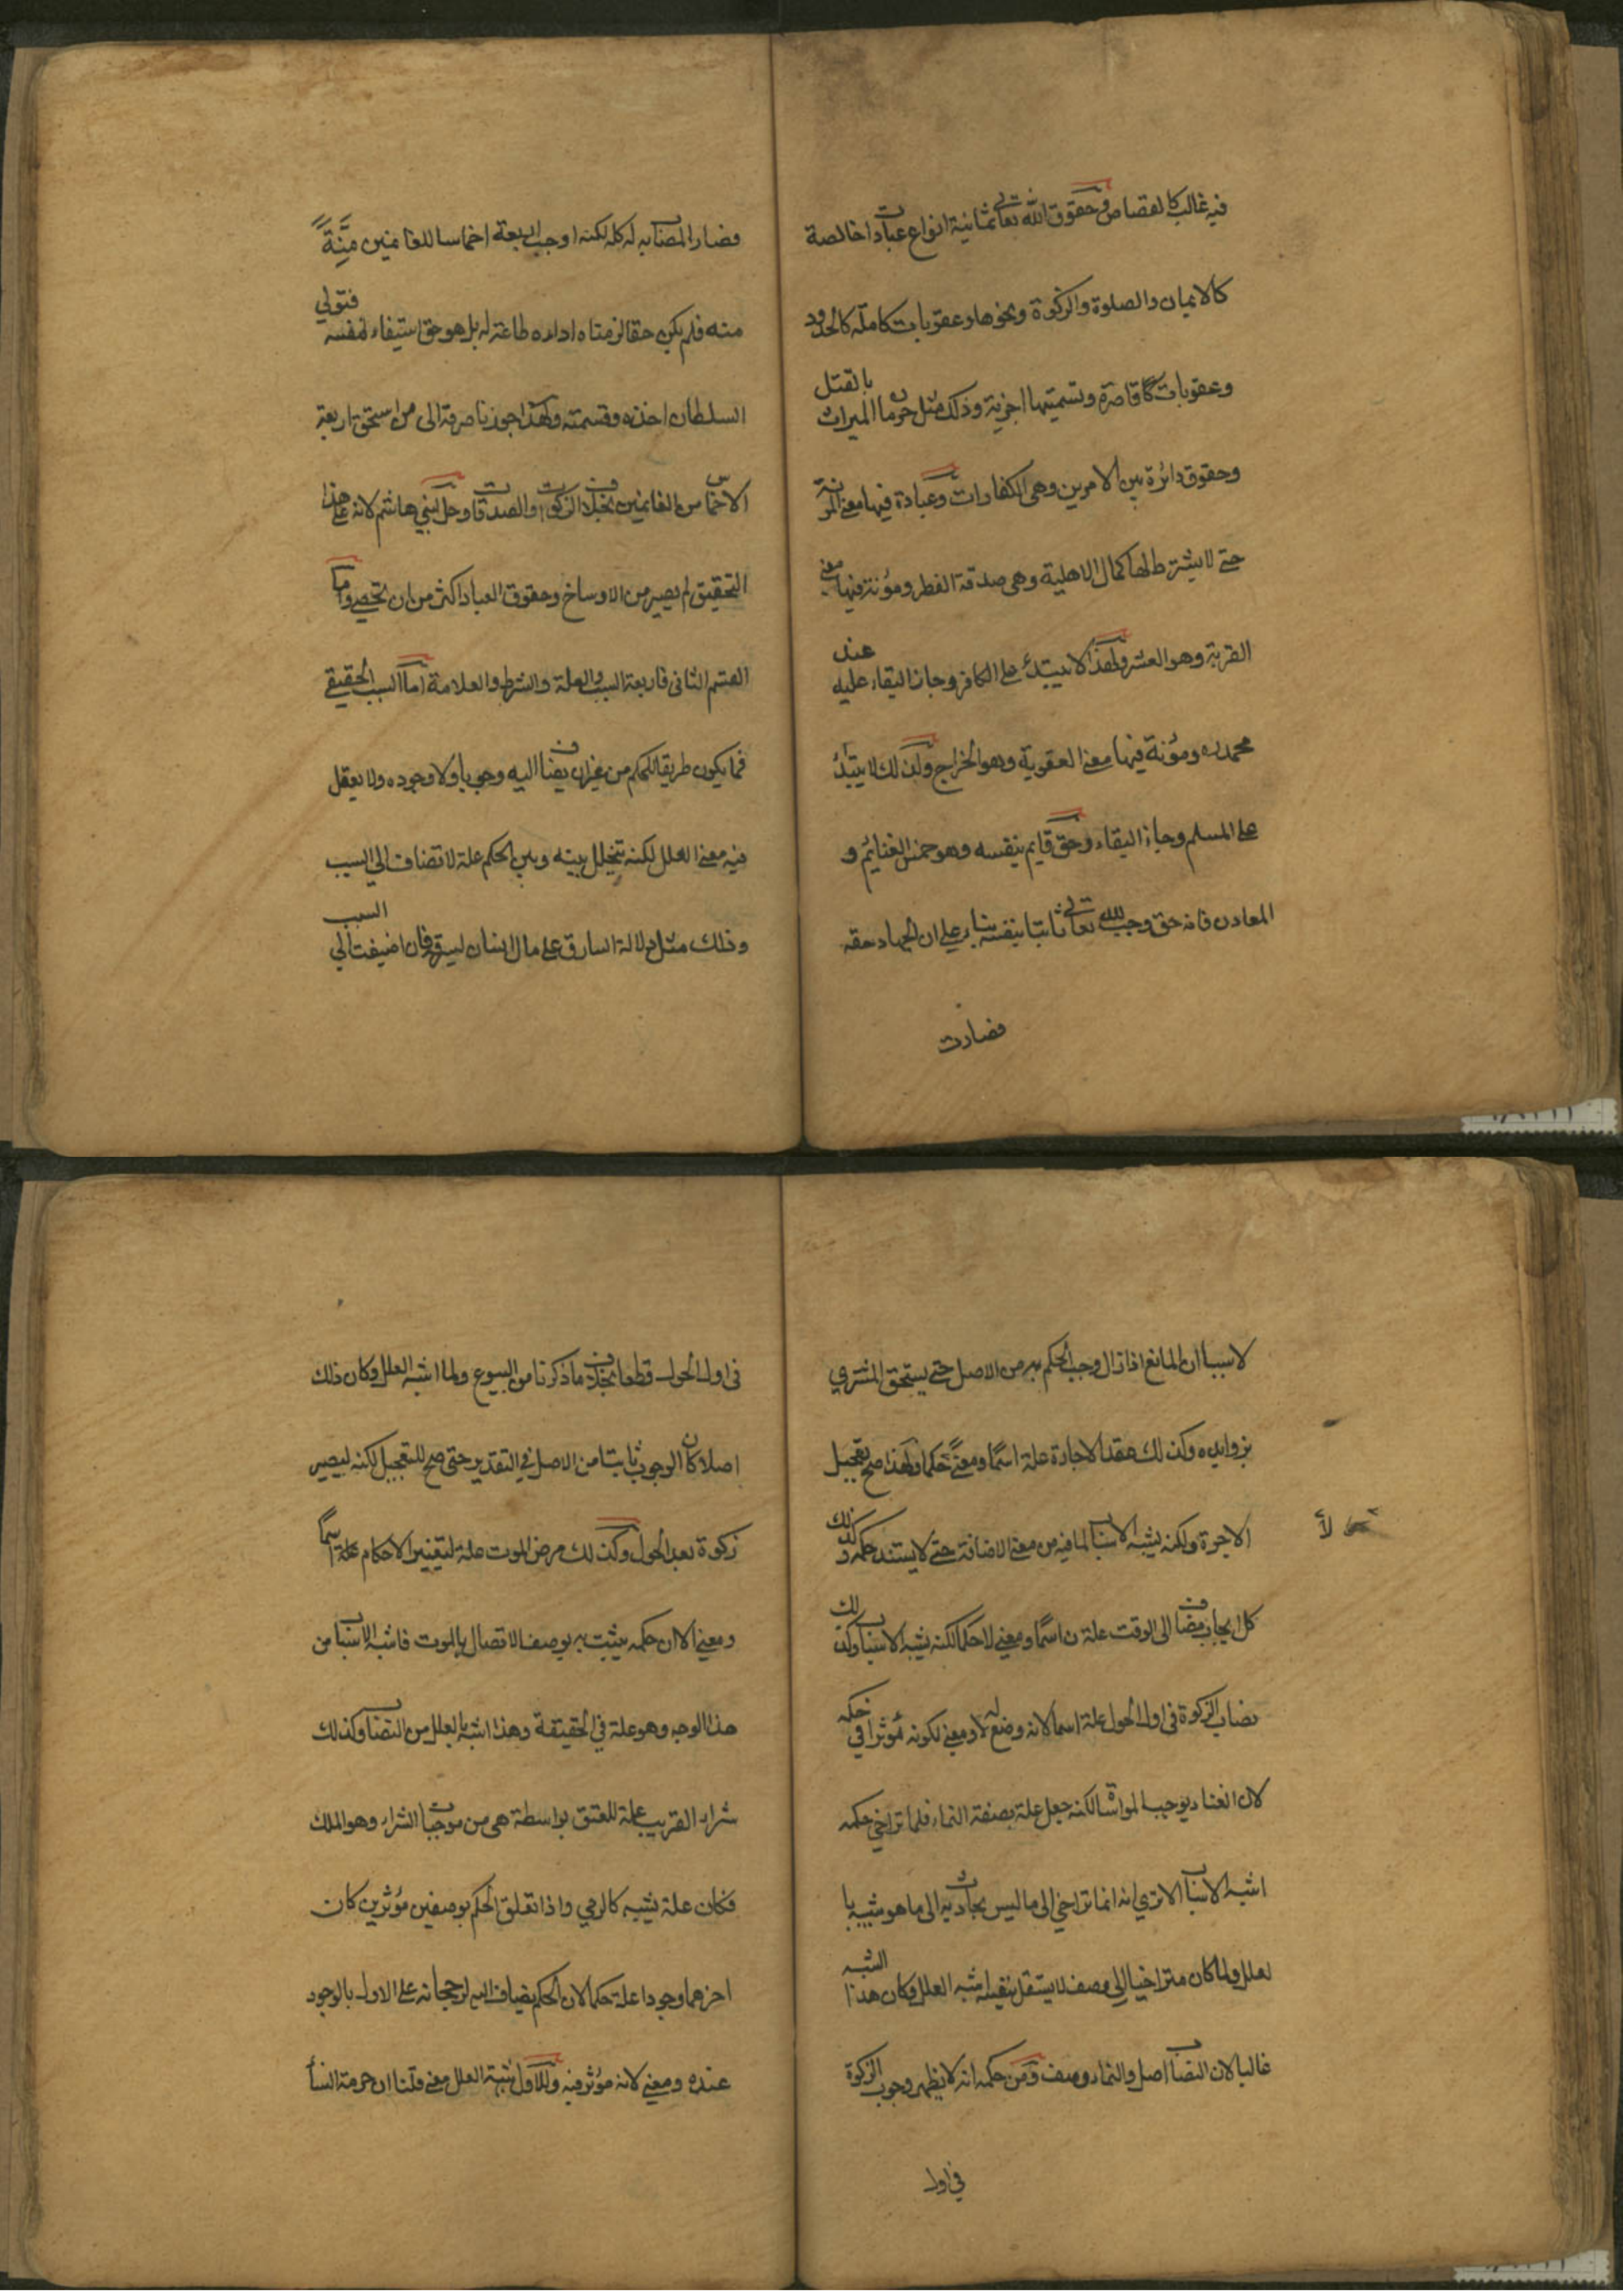 فيه غالب كالقصاص وحقوق الله تعالى ثمانية انواع عبادات خالصة
كالايمان والصلوة والزكوة ونحوها وعقوبات كاملة كالحدود
وعقوبات قاصرة وتسميتها اجزية وذلك مثل حرمان الميراث بالقتل
وحقوق دائرة بين الامرين وهى الكفارات وعبادة فيها معنى المؤنة
حتى لا يشترط لها كمال الاهلية وهى صدقة الفطر ومؤنة فيها معنى
القربة وهو العشر ولهذا لا يبتدئ على الكافر وجاز البقاء عليه عند
محمد ره ومؤنة فيها معنى العقوبة وهو الخراج ولذلك لا يبتدئ
على المسلم وجاز البقاء وحق قايم بنفسه وهو خمس الغنائم و
المعادن فانه حق وجب لله تعالى ثابتا بنفسه بناء على ان الجهاد حقه
فصارت
فصار المصاب به له كله لكنه اوجب اربعة اخماسا للغانمين منّةً
منه فلم يكن حقا لزمناه اداءه طاعة له بل هو حق استيفاء لنفسه فتولى
السلطان اخذه وقسمته ولهذا جوزنا صرفه الى من استحق اربعة
الاخماس من الغانمين بخلاف الزكوات والصدقات وحل لبنى هاشم لانه على هذا
التحقيق لم يصير من الاوساخ وحقوق العباد اكثر من ان تحصى واما
القسم الثانى فاربعة السبب والعلة والشرط والعلامة اما السبب الحقيقى
فما يكون طريقا للحكم من غير ان يضاف اليه وجوب ولا وجوده ولا يعقل
فيه معنى العلل لكنه يتخلل بينه وبين الحكم علة لا تضاف الى السبب
وذلك مثل دلالة السارق على مال انسان ليسرقه فان اضيفت الى السبب
لا سببا ان المانع اذا زال وجب الحكم به من الاصل حتى يستحق المشترى
بزوايده وكذلك عقد الاجارة علة اسما ومعنًى لا حكما ولهذا صح تعجيل
الاجرة ولكنه يشبه الاسباب لما فيه من معنى الاضافة حتى لا يستند حكمه وكذلك
لا
كل ايجاب مضاف الى الوقت علة اسما ومعنى لا حكما لكنه يشبه الاسباب وكذلك
نصاب الزكوة فى اول الحول علة اسما لانه وضع له ومعنى لكونه مؤثرا فى حكمه
لان الغناء يوجب المواساة لكنه جعل علة بصفة النماء فلما تراخى حكمه
اشبه الاسباب الا ترى انه انما تراخى الى ما ليس بحادث به الى ما هو شبيه با
لعلل ولما كان متراخيا الى وصف لا يستقل بنفسه اشبه العلل وكان هذا الشبه
غالبا لان النصاب اصل والنماء وصف ومن حكمه انه لا يظهر وجوب الزكوة
فى اول
فى اول الحول قطعا بخلاف ما ذكرنا من البيوع ولما اشبه العلل وكان ذلك
اصلا كان الوجوب ثابتا من الاصل فى التقدير حتى صح للتعجيل لكنه ليصير
زكوة بعد الحول وكذلك مرض الموت علة لتغيير الاحكام علة اسما
ومعنى الا ان حكمه يثبت به بوصف الاتصال بالموت فاشبه الاسباب من
هذا الوجه وهو علة فى الحقيقة وهذا اشبه بالعلل من النصاب وكذلك
شراء القريب علة للعتق بواسطة هى من موجبات الشراء وهو الملك
فكان علة يشبه كالرمى واذا تعلق الحكم بوصفين مؤثرين كان
اخرهما وجودا علة حكما لان الحكم يضاف اليه لرجحانه على الاول بالوجود
عنده ومعنى لانه مؤثر فيه وللاول شبهة العلل معنى قلنا ان حرمة النسأ